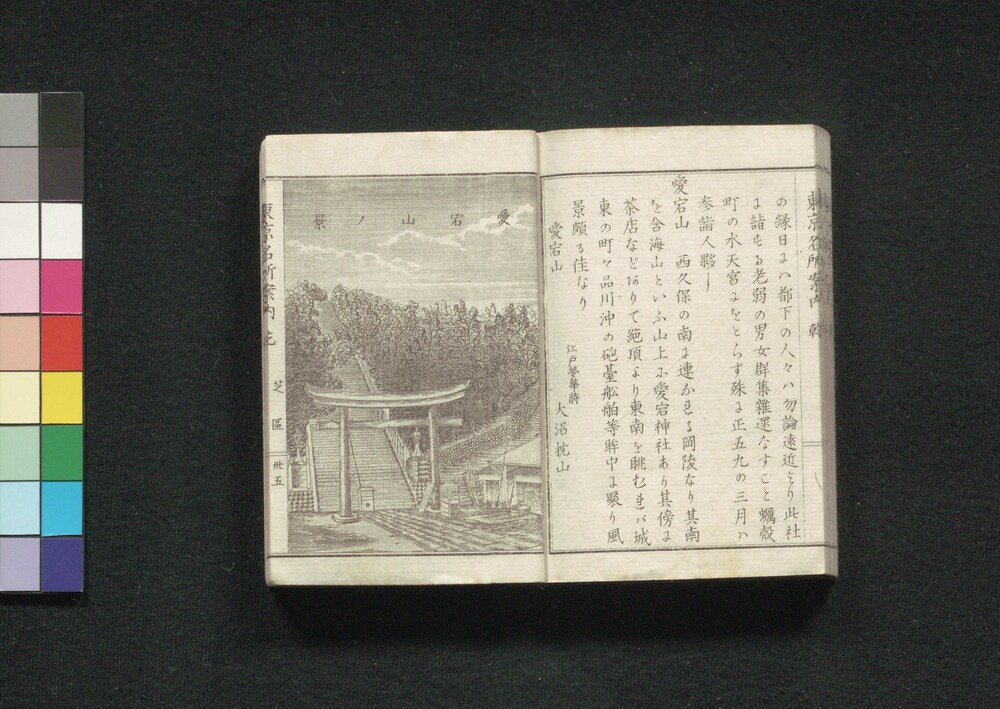 東京名所案内 乾
の縁日ハ都下の人々ハ勿論遠近より此社
に詣する老弱の男女群集雜遝なすこと蠣殻
町の水天宮にをとらず殊に正五九の三月ハ
参詣人夥し
愛宕山 西久保の南に連かれる岡陵なり其南
を含海山といふ山上に愛宕神社あり其傍に
茶店などありて絶頂より東南を眺むれバ城
東の町々品川沖の砲䑓舩舶等眸中に聚り風
景頗る佳なり
愛宕山
江戸繁華詩 大沼枕山
愛宕山ノ景
東京名所案内
芝區
卅五